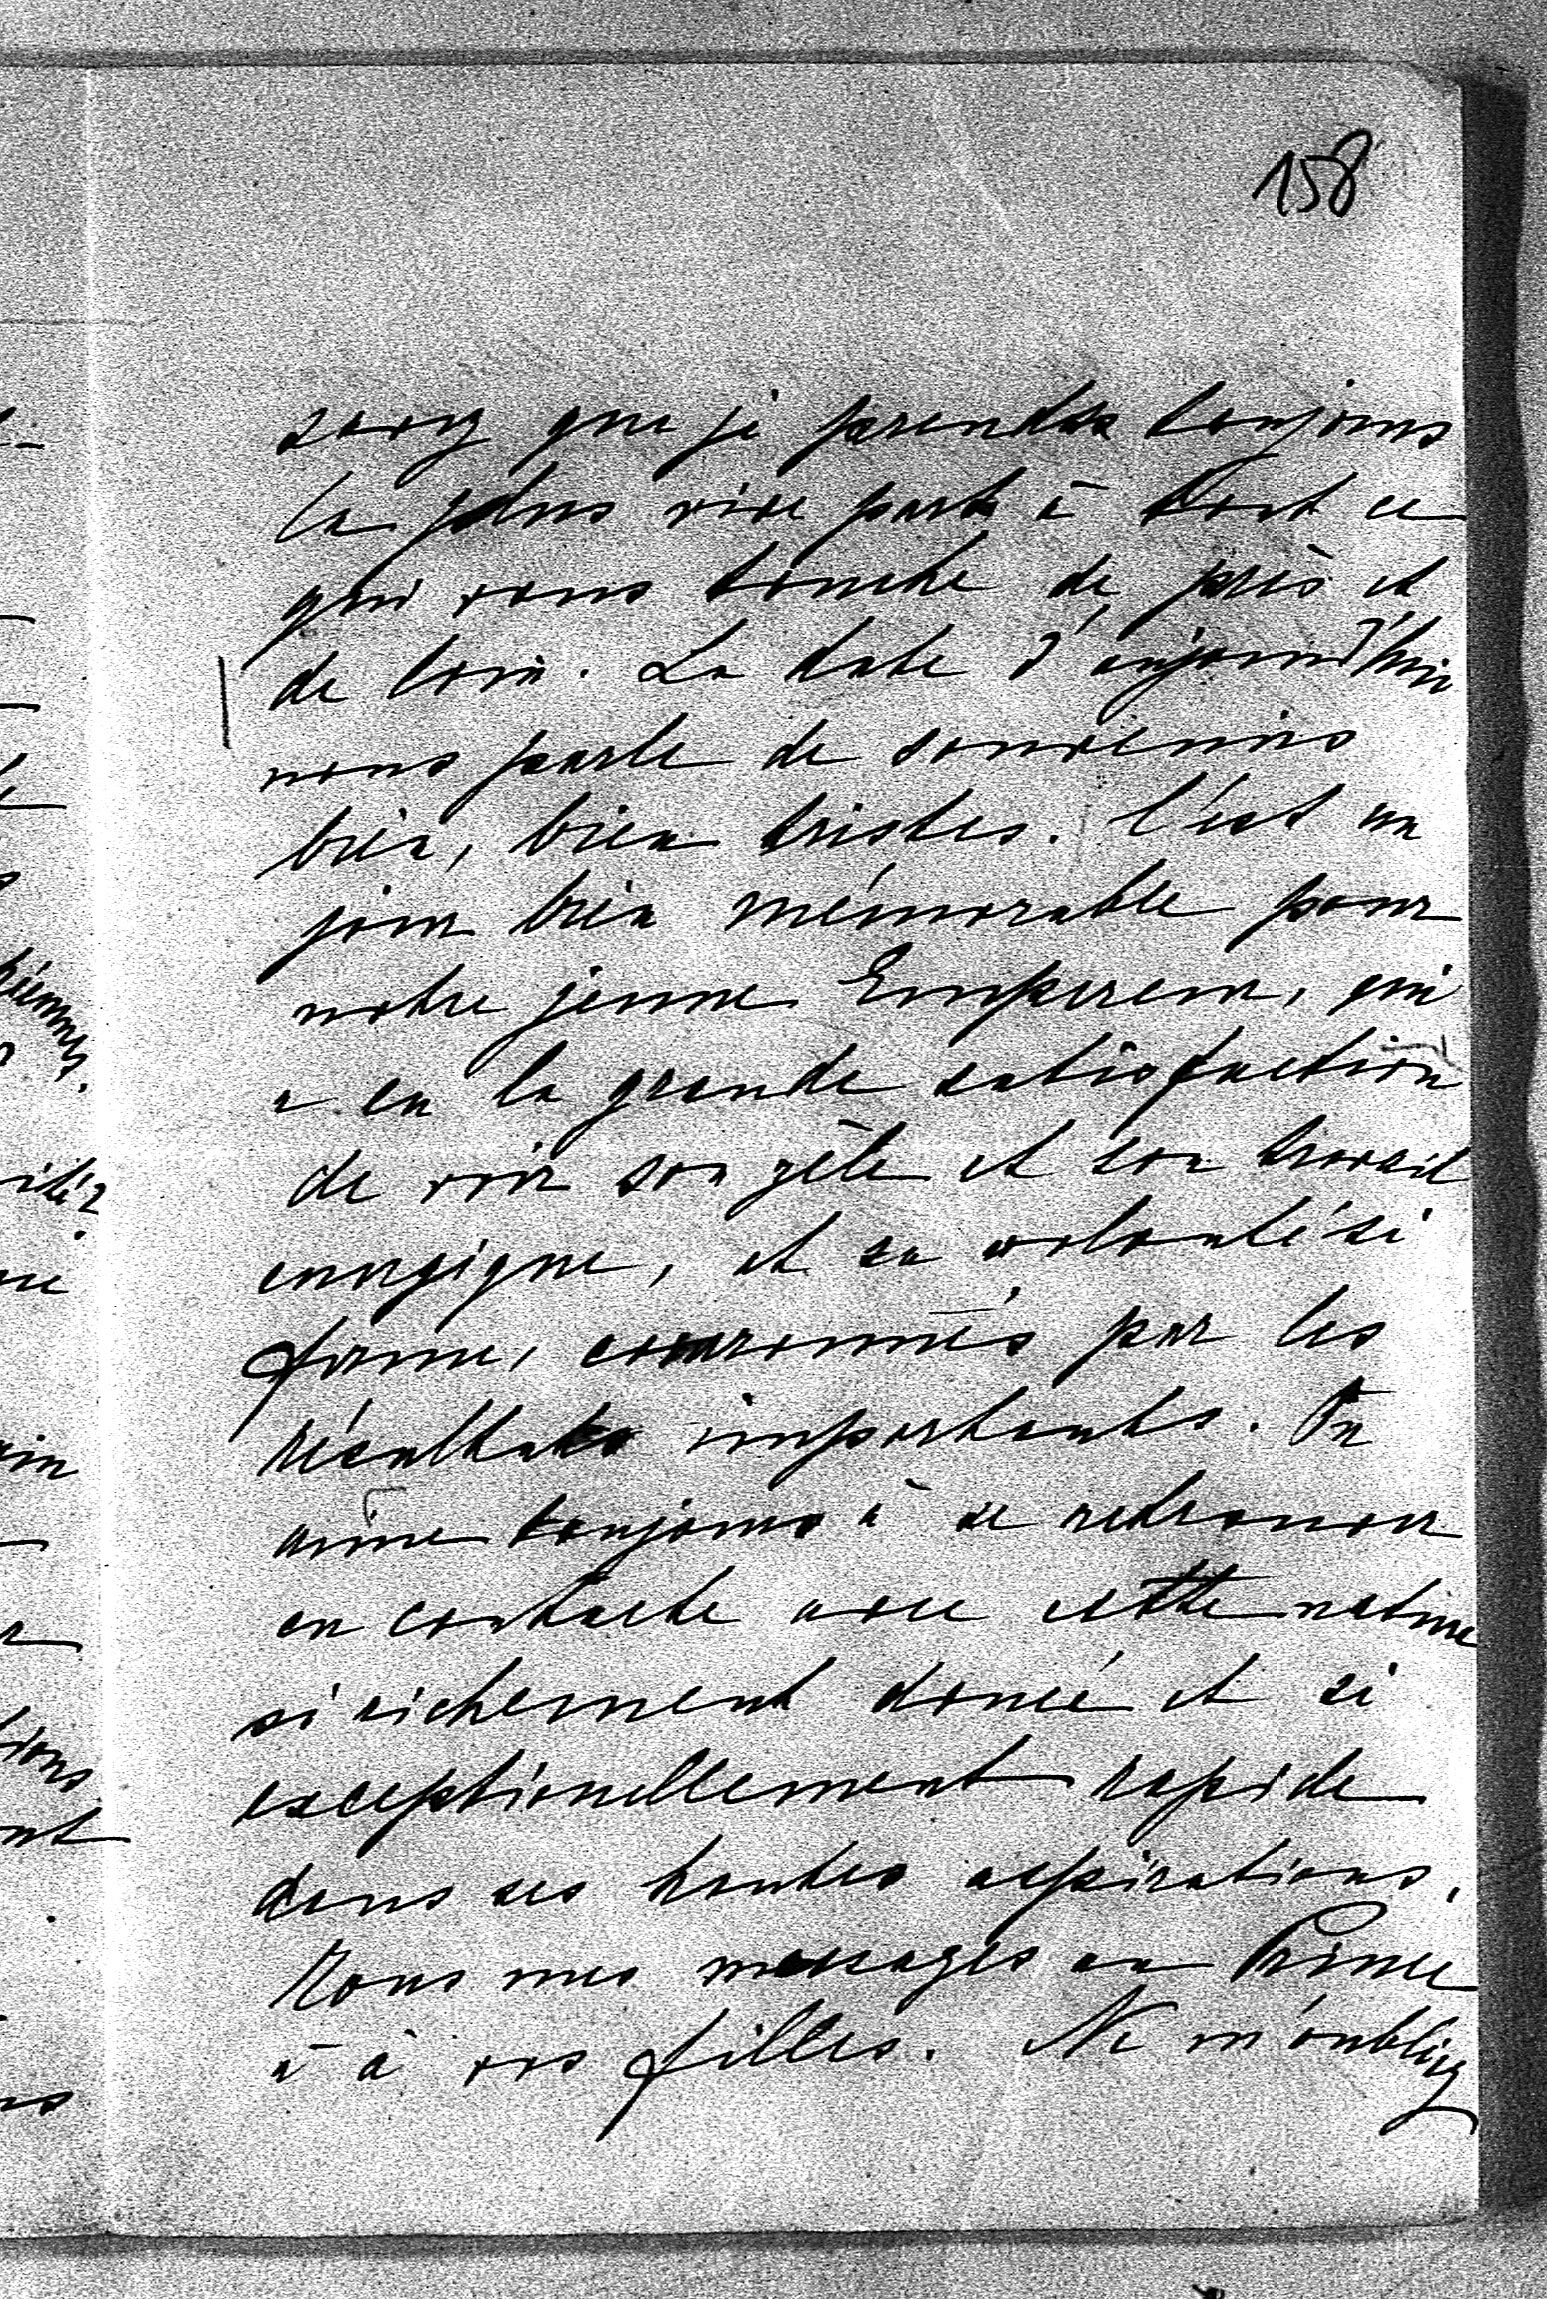 158
savez que je prendrai toujours
la plus vive part à tout ce
qui vous touche de près et
de loin. La date d'aujourd'hui
nous parle de souvenirs
bien, bien tristes. C'est un
jour bien mémorable pour
notre jeune Empereur, qui
a eu la grande satisfaction
de voir son zèle et son travail
energique, et sa volonté si
ferme, couronnés par les
résultats importants. On
aime toujours à se retrouver
en contacte avec cette nature
si richement douée et si
exceptionellement rapide
dans ses hautes aspirations.
Tous mes messages au Prince
à à vos filles. Ne m'oubliez